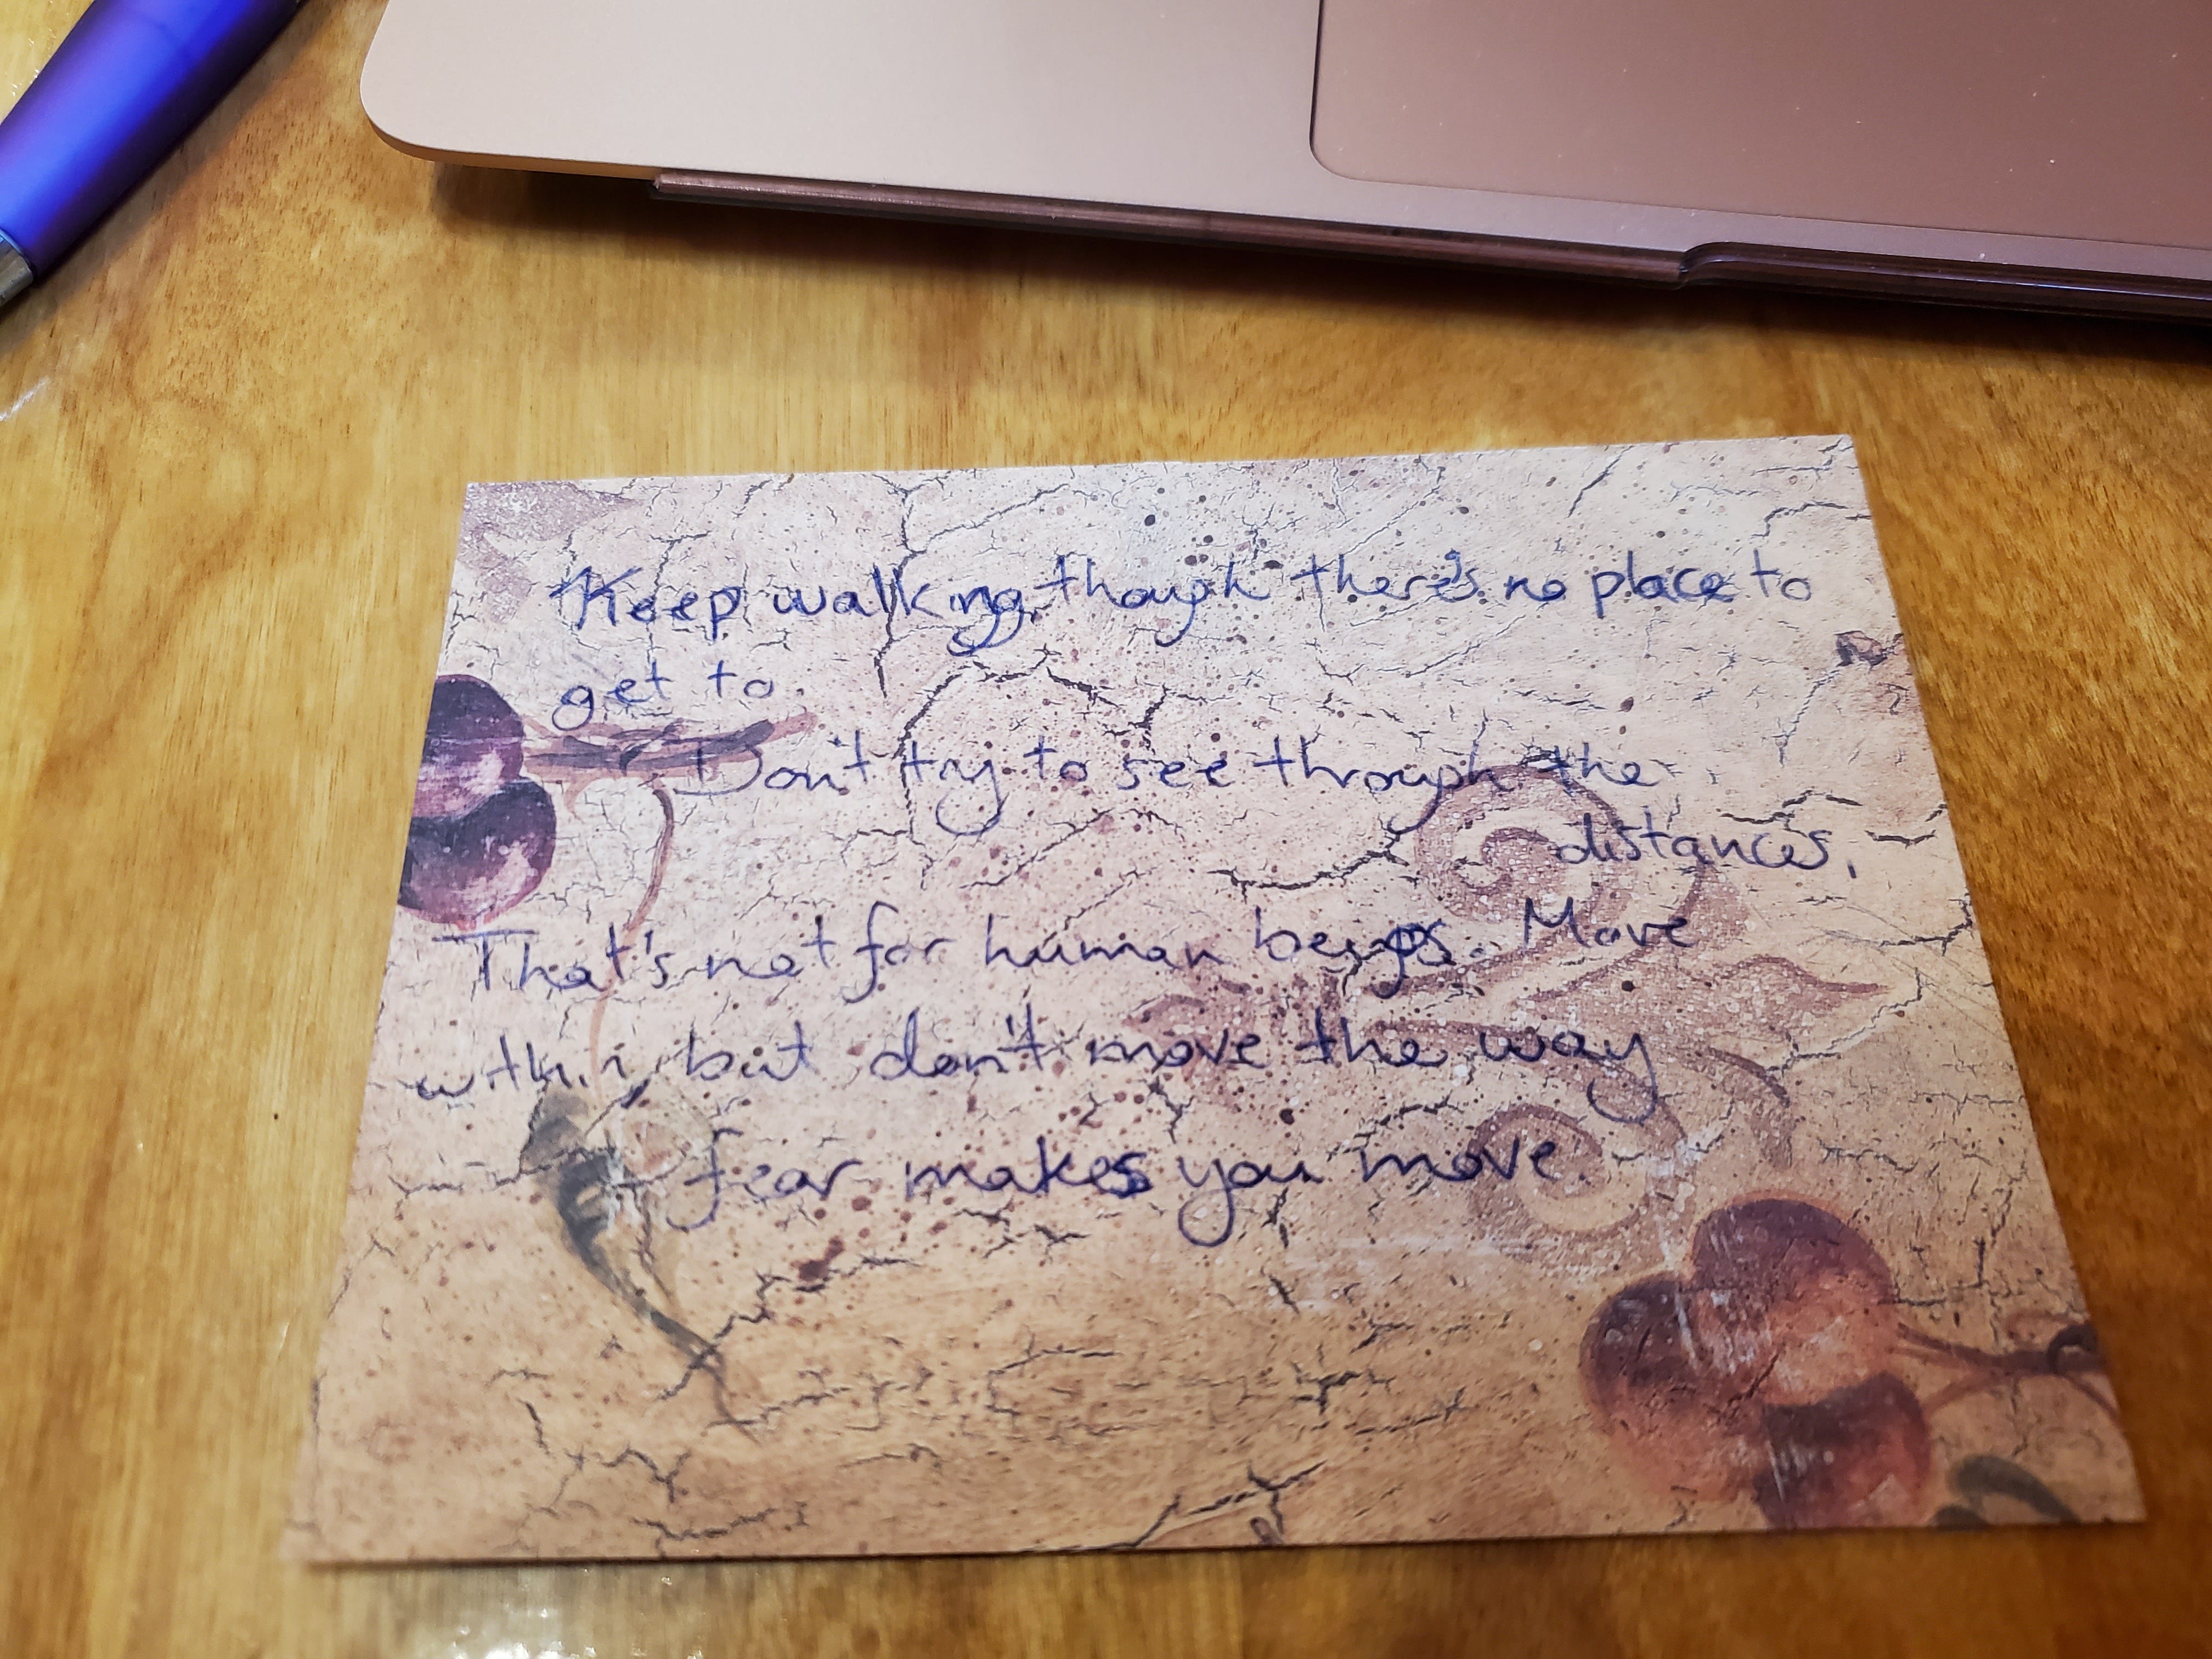 Keep walking, though there's no place to
get to.
Don't try to see through the
distances.
That's not for human beings. Move
within but don't move the way
fear makes you move.